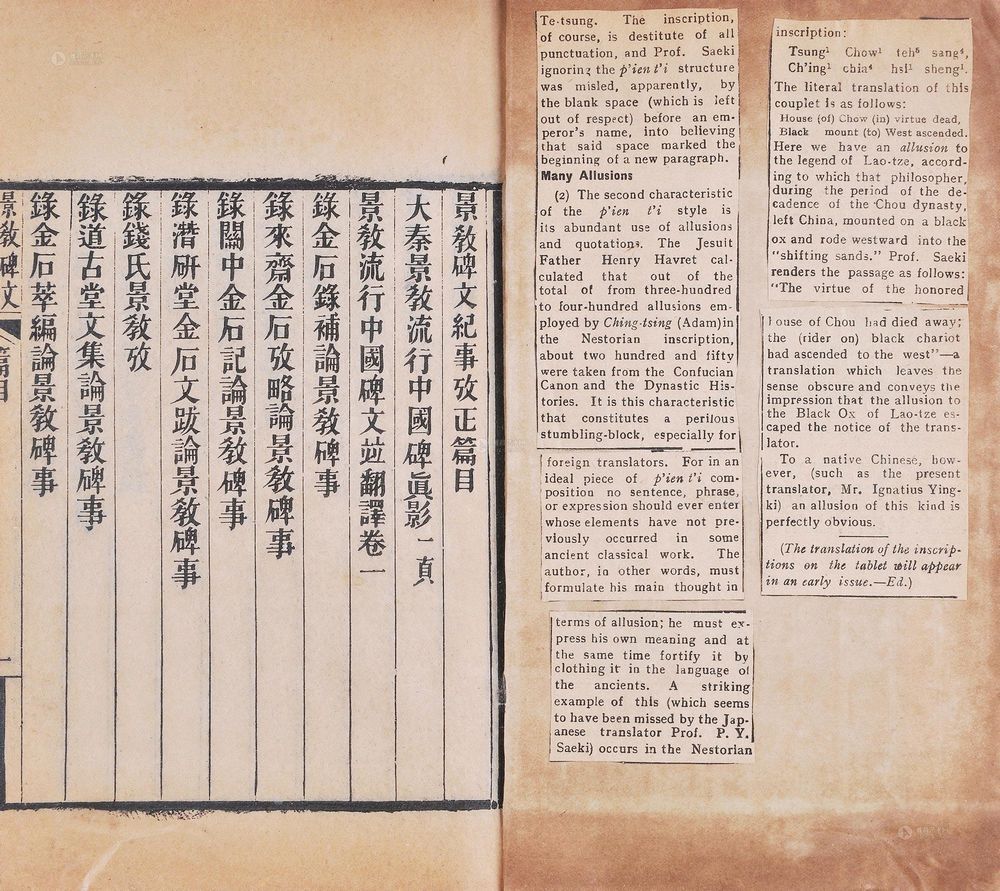 景教碑文紀事攷正篇目
大秦景教流行中國碑眞影一頁
景教流行中國碑文並翻譯卷一
錄金石錄補論景教碑事
錄來齋金石攷略論景教碑事
錄關中金石記論景教碑事
錄潛硏堂金石文跋論景教碑事
錄錢氏景教攷
錄道古堂文集論景教碑事
錄金石萃編論景教碑事
景教碑文
篇目
Te-tsung. The inscription,
of course, is destitute of all
punctuation, and Prof. Saeki
ignoring the p'ien t'i structure
was misled, apparently, by
the blank space (which is left
out of respect) before an em-
peror's name, into believing
that said space marked the
beginning of a new paragraph.
Many Allusions
(2) The second characteristic
of the p'ien t'i style is
its abundant use of allusions
and quotations. The Jesuit
Father Henry Havret cal-
culated that out of the
total of from three-hundred
to four-hundred allusions em-
ployed by Ching-tsing (Adam)in
the Nestorian inscription,
about two hundred and fifty
were taken from the Confucian
Canon and the Dynastic His-
tories. It is this characteristic
that constitutes a perilous
stumbling-block, especially for
foreign translators. For in an
ideal piece of p'ien t'i com-
position no sentence, phrase,
or expression should ever enter
whose elements have not pre-
viously occurred in some
ancient classical work. The
author, in other words, must
formulate his main thought in
terms of allusion; he must ex-
press his own meaning and at
the same time fortify it by
clothing it in the language of
the ancients. A striking
example of this (which seems
to have been missed by the Jap-
anese translator Prof. P. Y.
Saeki) occurs in the Nestorian
inscription:
Tsung¹ Chow¹ teh⁵ sang⁴,
Ch'ing¹ chia⁴ hsi¹ sheng¹.
The literal translation of this
couplet is as follows:
House (of) Chow (in) virtue dead,
Black mount (to) West ascended.
Here we have an allusion to
the legend of Lao-tze, accord-
ing to which that philosopher,
during the period of the de-
cadence of the Chou dynasty,
left China, mounted on a black
ox and rode westward into the
"shifting sands." Prof. Saeki
renders the passage as follows:
"The virtue of the honored
House of Chou had died away;
the (rider on) black chariot
had ascended to the west"—a
translation which leaves the
sense obscure and conveys the
impression that the allusion to
the Black Ox of Lao-tze es-
caped the notice of the trans-
lator.
To a native Chinese, how-
ever, (such as the present
translator, Mr. Ignatius Ying-
ki) an allusion of this kind is
perfectly obvious.
(The translation of the inscrip-
tions on the tablet will appear
in an early issue.—Ed.)